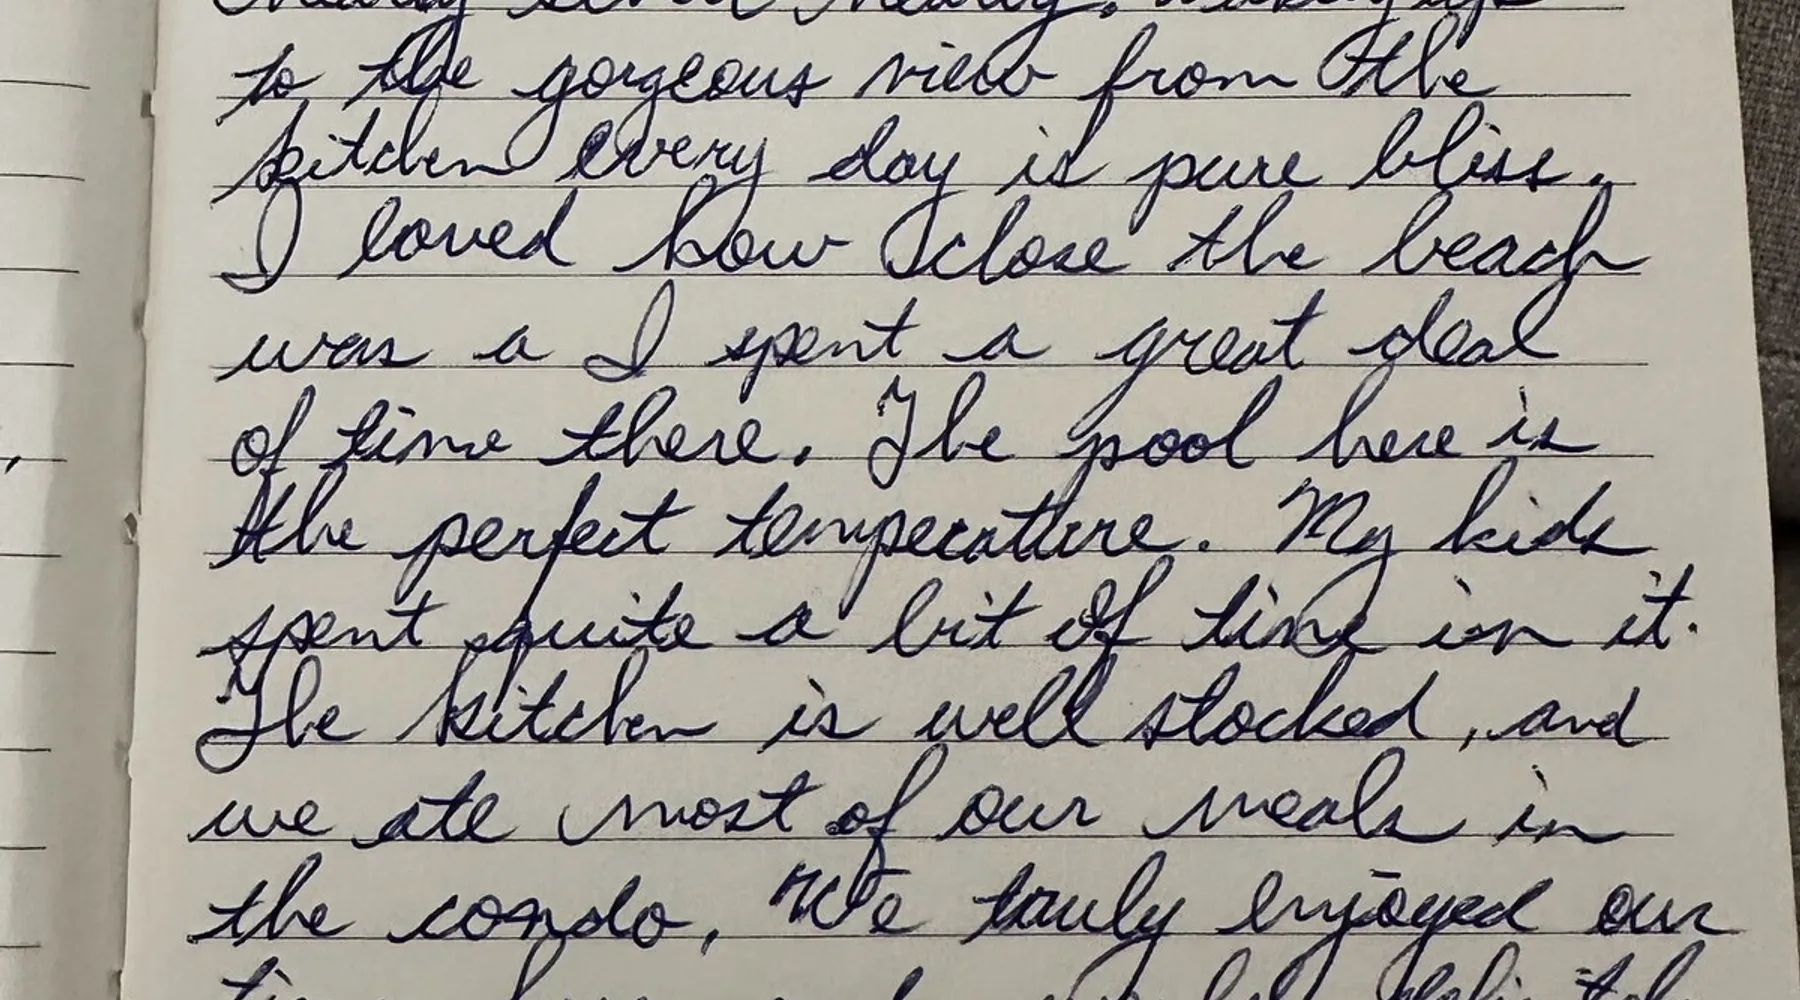 to the gorgeous view from the
kitchen every day is pure bliss.
I loved how close the beach
was a I spent a great deal
of time there. The pool here is
the perfect temperature. My kids
spent quite a bit of time in it.
The kitchen is well stocked, and
we ate most of our meals in
the condo. We truly enjoyed our